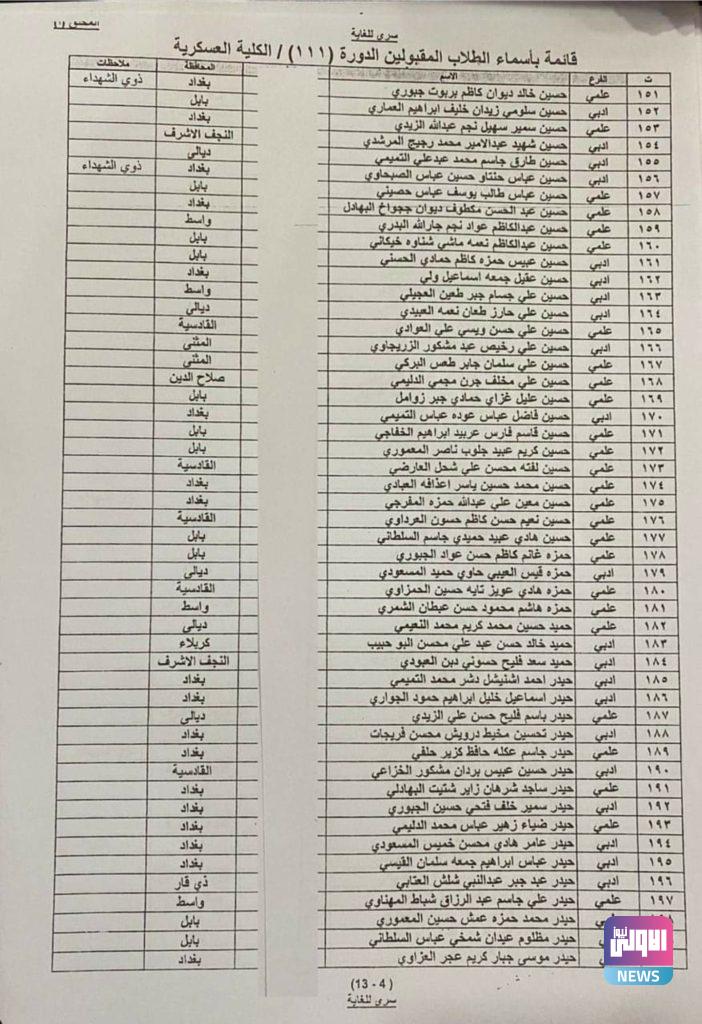 سري للغاية
قائمة بأسماء الطلاب المقبولين الدورة (١١١) / الكلية العسكرية
ت الفرع الاسم المحافظة ملاحظات
١٥١ علمي حسين خالد ديوان كاظم بربوت جبوري بغداد ذوي الشهداء
١٥٢ ادبي حسين سلومي زيدان خليف ابراهيم العماري بابل
١٥٣ علمي حسين سمير سهيل نجم عبدالله الزيدي بغداد
١٥٤ ادبي حسين شهيد عبدالامير محمد رجيج المرشدي النجف الاشرف
١٥٥ ادبي حسين طارق جاسم محمد عبدعلي التميمي ديالى
١٥٦ ادبي حسين عباس حنتاو حسين عباس الصبحاوي بغداد ذوي الشهداء
١٥٧ علمي حسين عباس طالب يوسف عباس حصيني بابل
١٥٨ علمي حسين عبد الحسن مكطوف ديوان ججواخ البهادل بغداد
١٥٩ علمي حسين عبدالكاظم عواد نجم جارالله البدري واسط
١٦٠ علمي حسين عبدالكاظم نعمه ماشي شناوه خيكاني بابل
١٦١ ادبي حسين عبيس حمزه كاظم حمادي الحسني بابل
١٦٢ ادبي حسين عقيل جمعه اسماعيل ولي بغداد
١٦٣ ادبي حسين علي جسام جبر طعين العجيلي واسط
١٦٤ ادبي حسين علي حارز طعان نعمه العبيدي ديالى
١٦٥ علمي حسين علي حسن ويسي علي العوادي القادسية
١٦٦ ادبي حسين علي رخيص عبد مشكور الزريجاوي المثنى
١٦٧ علمي حسين علي سلمان جابر طعس البركي المثنى
١٦٨ علمي حسين علي مخلف جرن مجمي الدليمي صلاح الدين
١٦٩ علمي حسين عليل غزاي حمادي جبر زوامل بابل
١٧٠ ادبي حسين فاضل عباس عوده عباس التميمي بغداد
١٧١ علمي حسين قاسم فارس عربيد ابراهيم الخفاجي بابل
١٧٢ علمي حسين كريم عبيد جلوب ناصر المعموري بابل
١٧٣ علمي حسين لفته محسن علي شحل العارضي القادسية
١٧٤ علمي حسين محمد حسين ياسر اعذافه العبادي بغداد
١٧٥ علمي حسين معين علي عبدالله حمزه المفرجي بغداد
١٧٦ علمي حسين نعيم حسن كاظم حسون العرداوي القادسية
١٧٧ علمي حسين هادي عبيد حميدي جاسم السلطاني بابل
١٧٨ علمي حمزه غانم كاظم حسن عواد الجبوري بابل
١٧٩ ادبي حمزه قيس العيبي حاوي حميد المسعودي ديالى
١٨٠ علمي حمزه هادي عويز تايه حسين الحمزاوي القادسية
١٨١ علمي حمزه هاشم محمود حسن عبطان الشمري واسط
١٨٢ علمي حميد حسين محمد كريم محمد النعيمي ديالى
١٨٣ ادبي حميد خالد حسن عبد علي محسن البو حبيب كربلاء
١٨٤ ادبي حميد سعد فليح حسوني دبن العبودي النجف الاشرف
١٨٥ ادبي حيدر احمد اشنيشل دشر محمد التميمي بغداد
١٨٦ ادبي حيدر اسماعيل خليل ابراهيم حمود الجواري بغداد
١٨٧ علمي حيدر باسم فليح حسن علي الزيدي ديالى
١٨٨ ادبي حيدر تحسين مخيط درويش محسن فريجات بغداد
١٨٩ علمي حيدر جاسم عكله حافظ كزير حلفي بغداد
١٩٠ ادبي حيدر حسين عبيس بردان مشكور الخزاعي القادسية
١٩١ علمي حيدر ساجد شرهان زاير شتيت البهادلي بغداد
١٩٢ ادبي حيدر سمير خلف فتحي حسين الجبوري بغداد
١٩٣ علمي حيدر ضياء زهير عباس محمد الدليمي بغداد
١٩٤ ادبي حيدر عامر هادي محسن خميس المسعودي بغداد
١٩٥ ادبي حيدر عباس ابراهيم جمعه سلمان القيسي بغداد
١٩٦ ادبي حيدر عبد جبر عبدالنبي شلش العتابي ذي قار
١٩٧ علمي حيدر علي جاسم عبد الرزاق شباط المهناوي واسط
حيدر محمد حمزه عمش حسين المعموري بابل
حيدر مظلوم عيدان شمخي عباس السلطاني بابل
حيدر موسى جبار كريم عجر العزاوي بغداد
(13 - 4)
سري للغاية
الاولى نيوز
NEWS